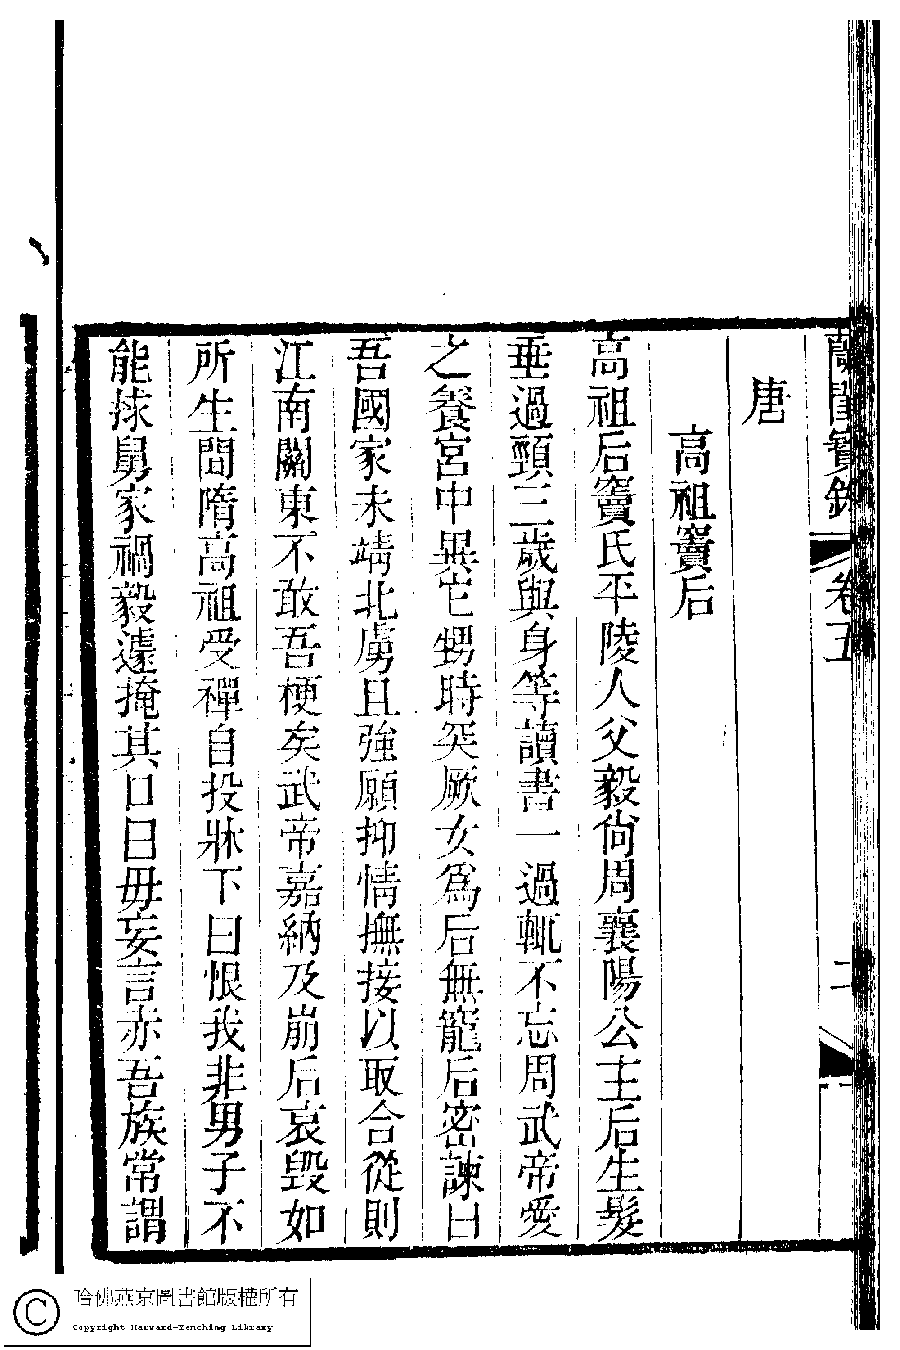 蘭閨寶錄 卷五 二
唐
高祖竇后
高祖后竇氏平陵人父毅尙周襄陽公主后生髮
垂過頸三歲與身等讀書一過輒不忘周武帝愛
之養宮中異它甥時突厥女爲后無寵后密諫曰
吾國家未靖北虜且強願抑情撫接以取合從則
江南關東不敢吾梗矣武帝嘉納及崩后哀毀如
所生聞隋高祖受禪自投牀下曰恨我非男子不
能捄舅家禍毅遽掩其口曰毋妄言赤吾族常謂
哈佛燕京圖書館版權所有
Copyright Harvard-Yenching Library